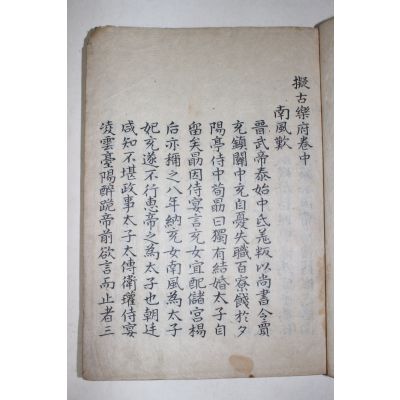 擬古樂府卷中
南風歎
晉武帝泰始中氐羌叛以尚書令賈
充鎮關中充自憂失職百寮餞於夕
陽亭侍中荀勗曰獨有結婚太子自
留矣勗因侍宴言充女宜配儲宮楊
后亦稱之八年納充女南風為太子
妃充遂不行惠帝之為太子也朝廷
咸知不堪政事太子太傅衛瓘侍宴
凌雲臺陽醉跪帝前欲言而止者三